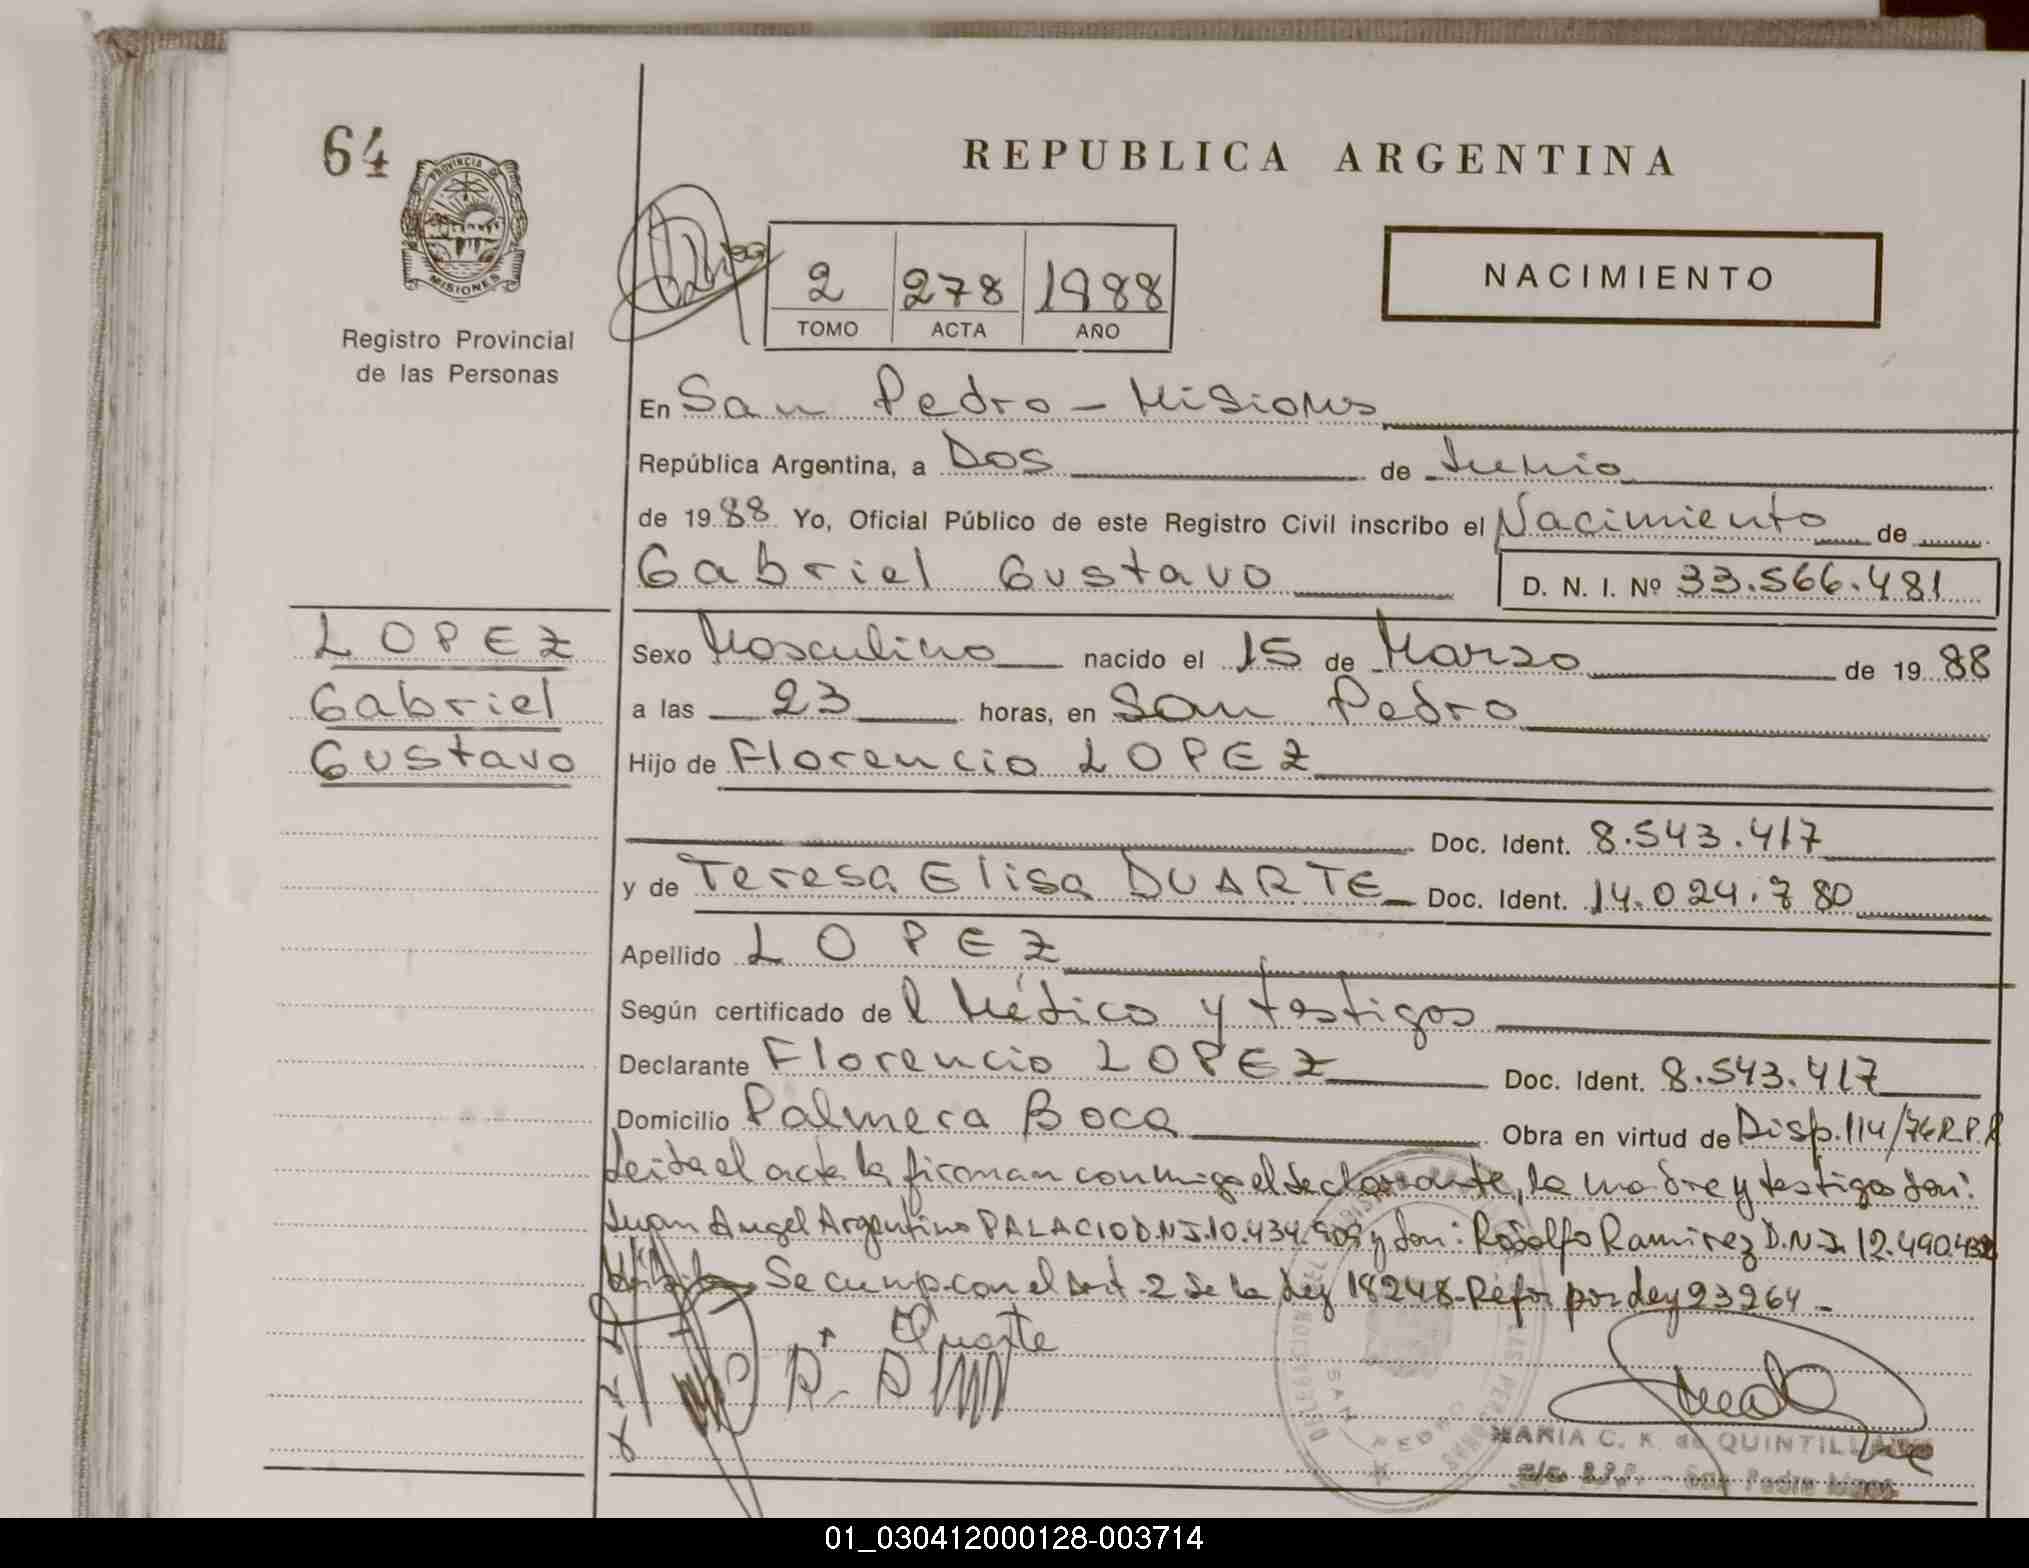 64
PROVINCIA DE
MISIONES
Registro Provincial
de las Personas
REPUBLICA ARGENTINA
2 278 1988
TOMO ACTA AÑO
NACIMIENTO
En San Pedro - Misiones
República Argentina, a Dos de Junio
de 1988 Yo, Oficial Público de este Registro Civil inscribo el Nacimiento de
Gabriel Gustavo D. N. I. Nº 33.566.481
LOPEZ
Gabriel
Gustavo
Sexo Masculino nacido el 15 de Marzo de 1988
a las 23 horas, en San Pedro
Hijo de Florencio LOPEZ
Doc. Ident. 8.543.417
y de Teresa Elisa DUARTE Doc. Ident. 14.024.780
Apellido LOPEZ
Según certificado de l Médico y testigos
Declarante Florencio LOPEZ Doc. Ident. 8.543.417
Domicilio Palmera Boca Obra en virtud de Disp. 114/74 R.P.P
Leida el acta la firman conmigo el declarante, la madre y testigos don:
Juan Angel Argentino PALACIO D.N.I. 10.434.909 y don: Rodolfo Ramirez D.N.I. 12.490.432
Se cump. con el Art. 2 de la Ley 18248. Refor por Ley 23264 -
Duarte
SAN PEDRO
MARIA C. K. de QUINTILLAN
San Pedro Mnes.
01_030412000128-003714